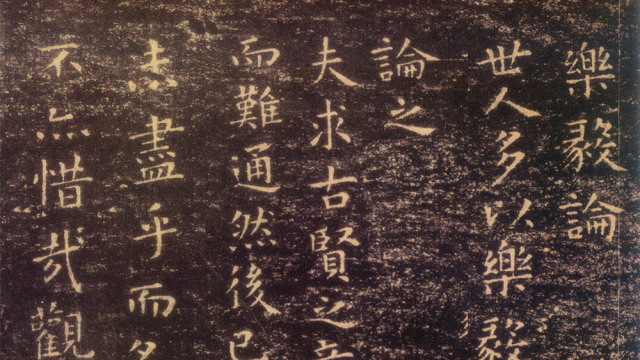 樂毅論
世人多以樂毅
論之
夫求古賢之意
而難通然後已
未盡乎而多
不亦惜哉觀